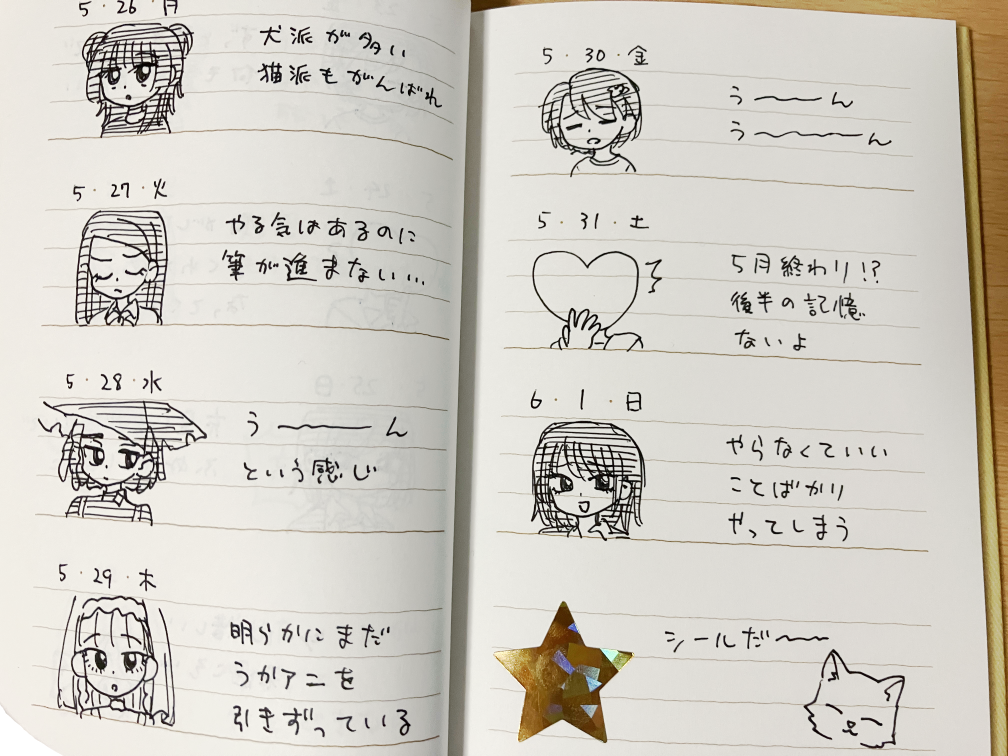 5・26・月
犬派が多い
猫派もがんばれ
5・27・火
やる気はあるのに
筆が進まない…
5・28・水
う――ん
という感じ
5・29・木
明らかにまだ
うかアニを
引きずっている
5・30・金
う――ん
う――ん
5・31・土
5月終わり!?
後半の記憶
ないよ
6・1・日
やらなくていい
ことばかり
やってしまう
シールだ〜〜